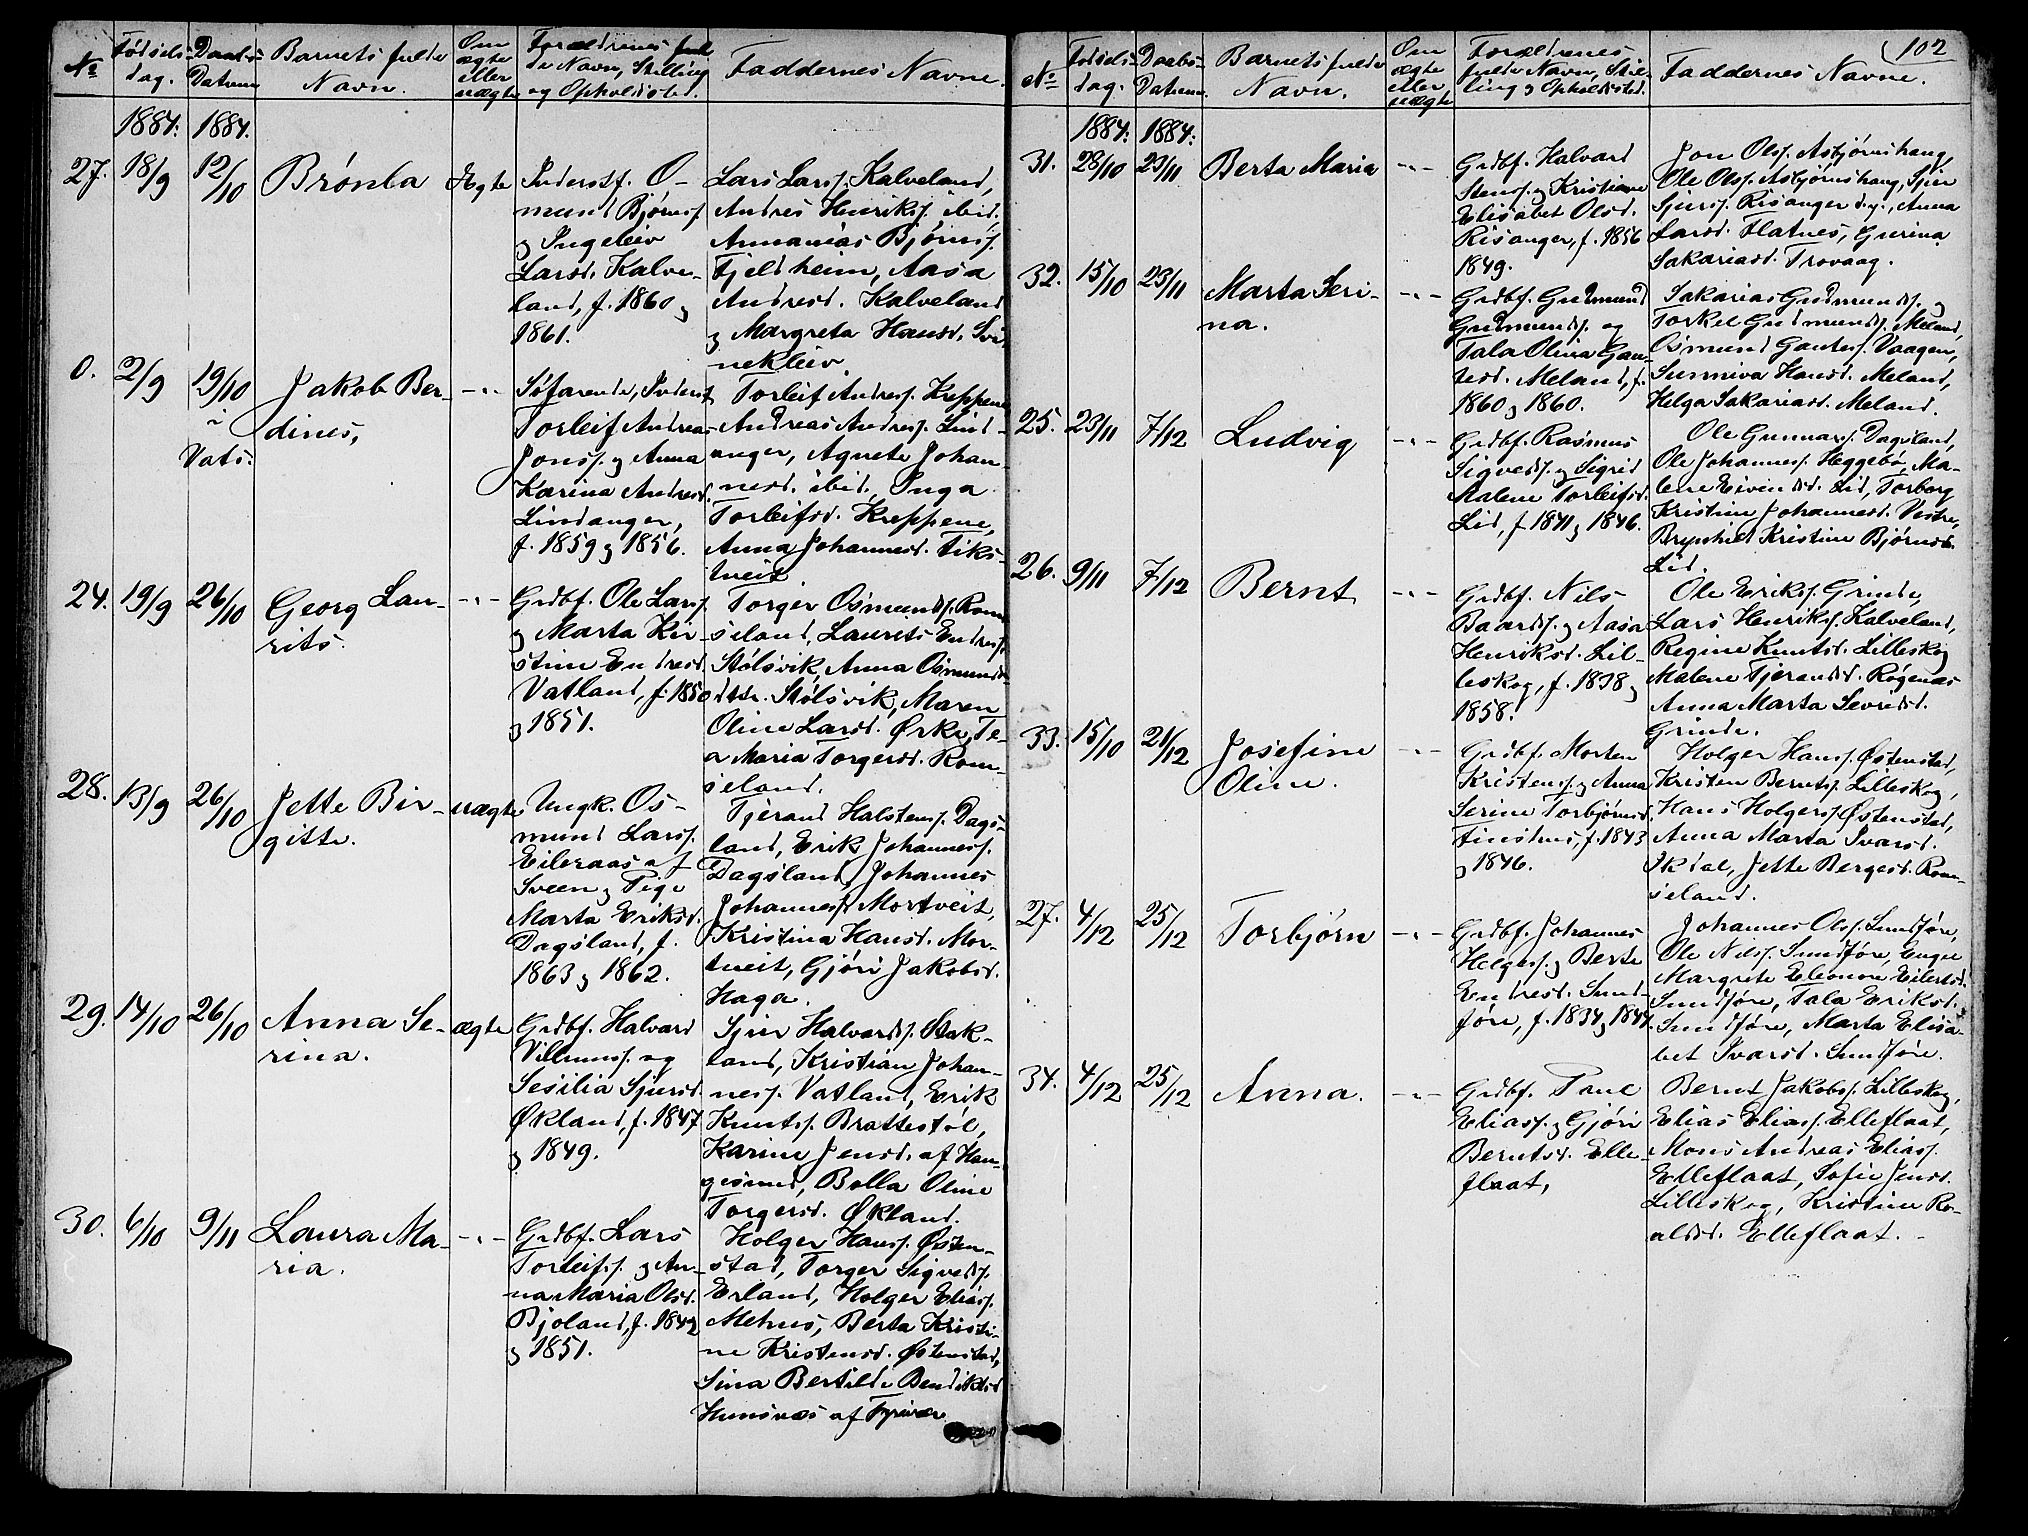 102
No
Fødsels-
dag.
Daabs-
Datum
Barnets fulde
Navn.
Om
ægte
eller
uægte
Forældrenes ful-
de Navn, Stilling
og Opholdsted.
Faddernes Navne.
1884. 1884.
27. 18/9 12/10 Brónla Ægte
Inderstf. O-
mund Bjørnss.
og Ingeleiv
Larsd. Kalve-
land, f. 1860 og
1861.
Lars Larss. Kalveland,
Andres Henrikss. ibid.,
Annanias Bjørnss.
Fjeldheim, Aasa
Andresd. Kalveland
og Margreta Hansd. Svi-
nekleiv.
0. 2/9 19/10
i
Vats.
Jakob Ber-
dines,
Søfarende, Inderst
Torleif Andreas
Jonss. og Anna
Karina Andresd.
Lindanger,
f. 1859 og 1856.
Torleif Andress. Kreppene
Andreas Andress. Lind-
anger, Agnete Johan-
nesd. ibid., Inga
Torleifsd. Kreppene,
Anna Johannesd. Fiks-
tveit
24. 19/9 26/10 Georg Lau-
rits.
Grdbf. Ole Larss.
og Marta Kir-
stine Endresd.
Vatland, f. 1850
og 1851.
Torger Osmundss. Rom-
seland, Laurits Endress.
Stólsvik, Anna Osmunds-
dtr. Stólsvik, Maren
Oline Larsd. Ørke, Te-
a Maria Torgersd. Rom-
seland.
28. 13/9 26/10 Jette Bir-
gitte.
uægte
Ungk. Os-
mund Larss.
Eileraas af
Sveen og Pige
Marta Eriksd.
Dagsland, f.
1863 og 1862.
Tjerand Halstenss. Dags-
land, Erik Johanness.
Dagsland, Johannes
Johanness. Mortveit,
Kristina Hansd. Mor-
tveit, Gjøri Jakobsd.
Haga.
29. 14/10 26/10 Anna Se-
rina.
ægte
Grdbf. Halvard
Villumss. og
Sesilia Sjursd.
Økland, f. 1847
og 1849.
Sjur Halvardss. Stak-
land, Kristian Johan-
ness. Vatland, Erik
Knutss. Brattestøl,
Karine Jensd. af Hau-
gesund, Bolla Oline
Torgersd. Økland.
30. 6/10 9/11 Laura Ma-
ria.
Grdbf. Lars
Torleifss. og An-
na Maria Olsd.
Bjoland, f. 1842
og 1851.
Holger Hanss. Østen-
stad, Torger Sigvedss.
Erland, Holger Eliass.
Mehus, Berta Kristi-
ne Kristensd. Østenstad,
Sina Bertilde Bendiksd.
Hunsvæs af Tysvær
No
Fødsels-
dag.
Daabs-
Datum.
Barnets fulde
Navn.
Om
ægte
eller
uægte
Forældrenes
fulde Navn, Stil-
ling og Opholdsted.
Faddernes Navne.
1884. 1884.
31. 28/10 23/11 Berta Maria
Grdbf. Halvard
Stenss. og Kristiane
Elisabet Olsd.
Risanger, f. 1856
1849.
Jon Olss. Asbjørnshaug,
Ole Olss. Asbjørnshaug, Sjur
Sjurss. Risanger d.y., Anna
Larsd. Flatnes, Gurina
Sakariasd. Trovaag.
32. 15/10 23/11 Marta Seri-
na.
Grdbf. Gudmund
Gudmundss. og
Tala Olina Gau-
tesd. Meland, f.
1860 og 1860.
Sakarias Gudmundss. og
Torkel Gudmundss. Meland,
Osmund Gautess. Vaagen,
Sunniva Hansd. Meland,
Helga Sakariasd. Meland.
25. 23/11 7/12 Ludvig
Grdbf. Rasmus
Sigvedss. og Sigrid
Malene Torleifsd.
Lid, f. 1841 og 1846.
Ole Gunnarss. Dagsland,
Ole Johanness. Heggebø, Ma-
lene Eivindsd. Lid, Torborg
Kristine Johannesd. Vestre,
Brynhild Kristine Bjørnsd.
Lid.
26. 9/11 7/12 Bernt
Grdbf. Nils
Baardss. og Aasa
Henriksd. Lil-
leskog, f. 1838 og
1858.
Ole Erikss. Grinde,
Lars Henrikss. Kalveland,
Regine Knutsd. Lilleskog
Malene Tjerandsd. Røgenæs
Anna Marta Sevridsd.
Grinde.
33. 15/10 21/12 Josefine
Oline.
Grdbf. Morten
Kristenss. og Anna
Serine Torbjørnsd.
Finshus, f. 1843
og 1846.
Holger Hanss. Østenstad,
Kristen Berntss. Lilleskog,
Hans Holgerss. Østenstad,
Anna Marta Ivarsd.
Ikdal, Jette Bergesd. Rom-
seland.
27. 4/12 25/12 Torbjørn
Grdbf. Johannes
Helgess. og Berta
Endresd. Sund-
føre, f. 1834 og 1844.
Johannes Olss. Sundføre,
Ole Nilss. Sundføre, Engel
Margrete Eleonore Eilertsd.
Sundføre, Tala Eriksd.
Sundføre, Marta Elisa-
bet Ivarsd. Sundføre.
34. 4/12 25/12 Anna.
Grdbf. Paul
Eliass. og Gjøri
Berntsd. Elle-
flaat,
Bernt Jakobss. Lilleskog,
Elias Eliass. Elleflaat,
Mons Andreas Eliass.
Elleflaat, Sofie Jensd.
Lilleskog, Kristine Ro-
aldsd. Elleflaat.